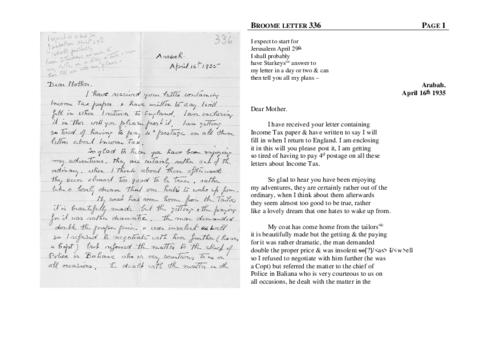 336
Arabah
April 16th 1935
Dear Mother.
I have received your letter containing
Income Tax paper & have written to say I will
fill in when I return to England. I am enclosing
it in this will you please post it, I am getting
so tired of having to pay 4d postage on all these
letters about Income Tax.
So glad to hear you have been enjoying
my adventures, they are certainly rather out of the
ordinary, when I think about them afterwards
they seem almost too good to be true, rather
like a lovely dream that one hates to wake up from.
My coat has come from the tailors
it is beautifully made but the getting & the paying
for it was rather dramatic. The man demanded
double the proper price & was insolent as well
so I refused to negotiate with him further (he was
a Copt) but referred the matter to the Chief of
Police in Baliana who is very courteous to us on
all occasions, he dealt with the matter in the
BROOME LETTER 336 PAGE 1
I expect to start for
Jerusalem April 29th
I shall probably
have Starkeys answer to
my letter in a day or two & can
then tell you all my plans –
Arabah.
April 16th 1935
Dear Mother.
I have received your letter containing
Income Tax paper & have written to say I will
fill in when I return to England. I am enclosing
it in this will you please post it, I am getting
so tired of having to pay 4d postage on all these
letters about Income Tax.
So glad to hear you have been enjoying
my adventures, they are certainly rather out of the
ordinary, when I think about them afterwards
they seem almost too good to be true, rather
like a lovely dream that one hates to wake up from.
My coat has come from the tailors
it is beautifully made but the getting & the paying
for it was rather dramatic, the man demanded
double the proper price & was insolent
so I refused to negotiate with him further (he was
a Copt) but referred the matter to the chief of
Police in Baliana who is very courteous to us on
all occasions, he dealt with the matter in the